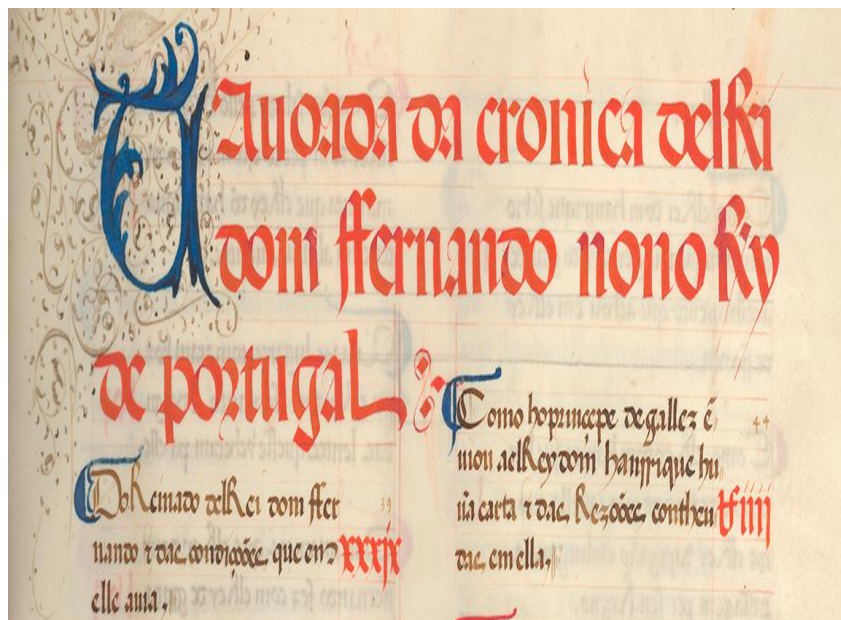 TAuoada da cronica delRei
dom ffernando nono Rey
de portugal
Do Reinado delRei dom ffer 39
nando ⁊ das condições que en xxxjx
elle auia.
Como ho princepe de gallez ẽ 44
uiou a elRey dom hanrrique hu
ũa carta ⁊ das Rezoões contheu Riiij
das em ella.